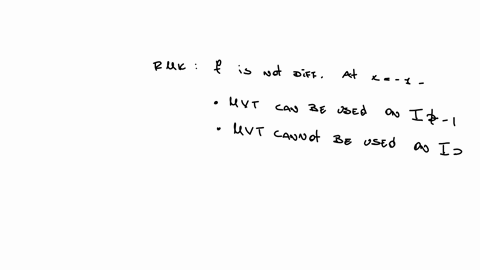 RMK: f is not DIFF. At x=-1-
• MVT CAN BE USED ON I∌-1
• MVT CANNOT BE USED ON I⊃